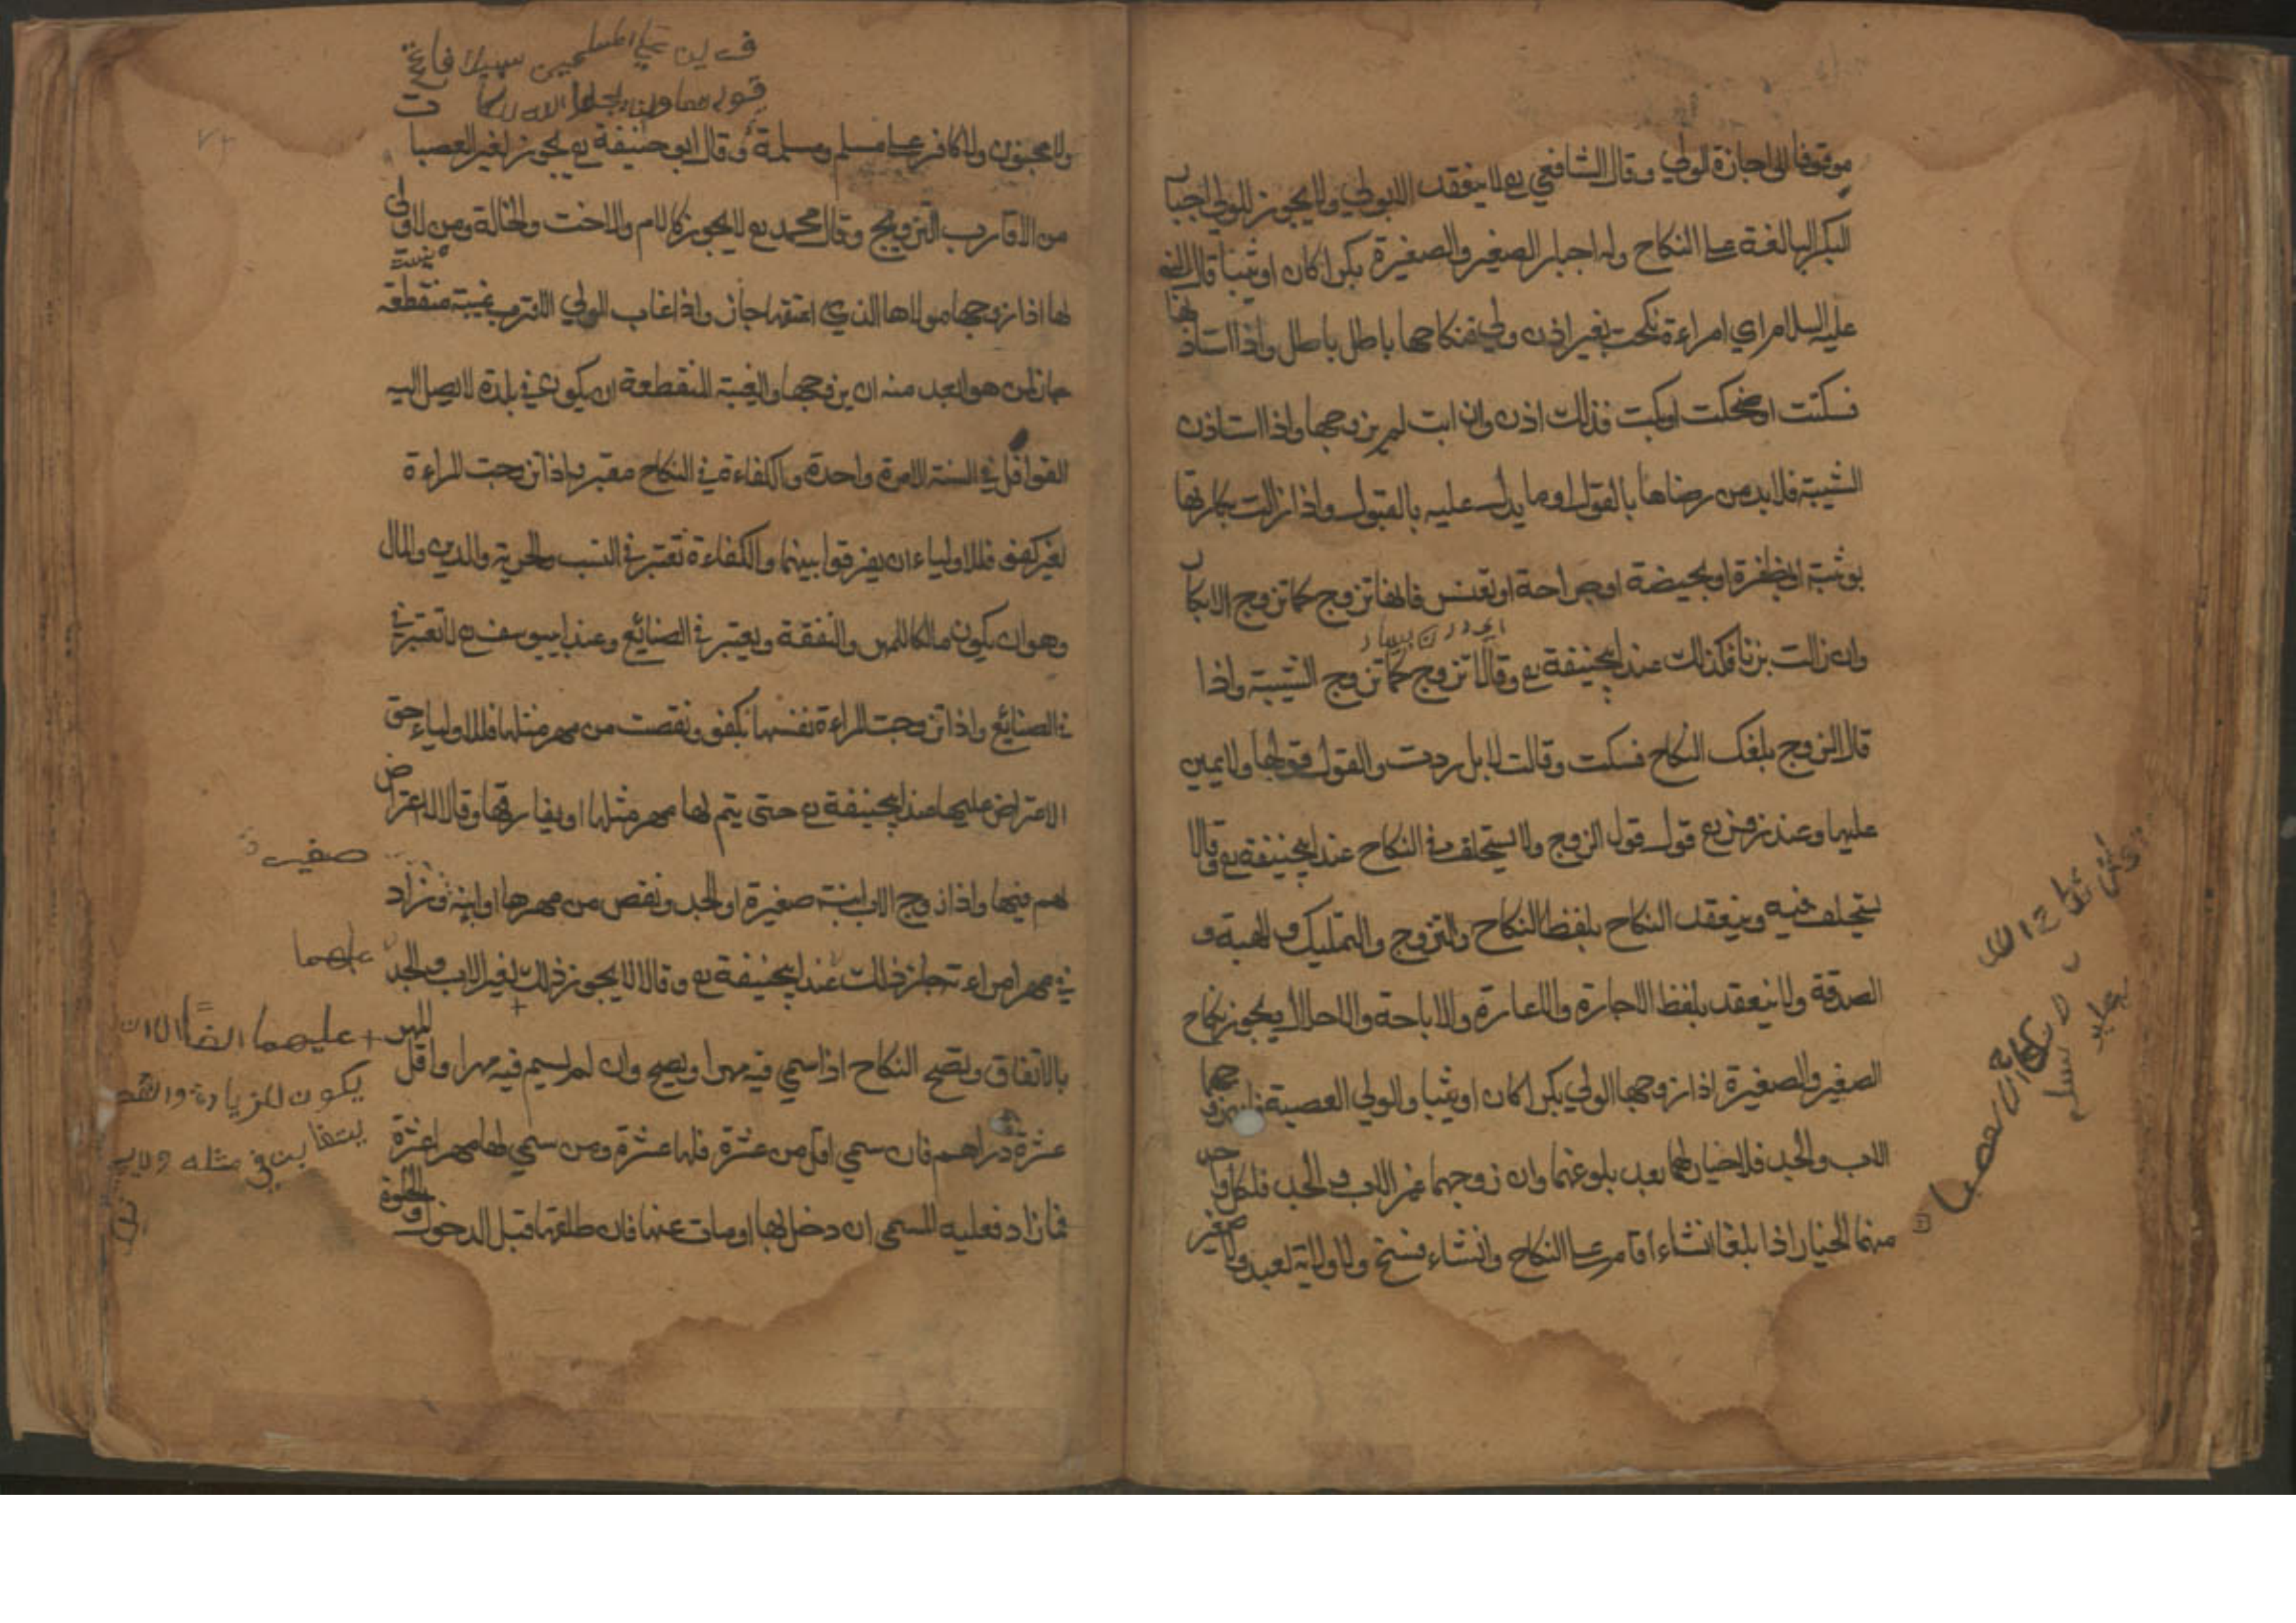 موقوفا الى اجازة الولي وقال الشافعي رح لا ينعقد الا بولي ولا يجوز للولي اجبار
البكر البالغة على النكاح وله اجبار الصغير والصغيرة بكرا كان او ثيبا قال النبي
عليه السلام اي امراءة نكحت بغير اذن ولي فنكاحها باطل باطل واذا استاذنها
فسكتت او ضحكت او بكت فذلك اذن وان ابت لم يزوجها واذا استاذن
الثيبة فلا بد من رضاها بالقول او ما يدل عليه بالقبول واذا زالت بكارتها
بوثبة او بظفرة او بحيضة او جراحة او تعنس فانها تزوج كما تزوج الابكار
وان زالت بزنا فكذلك عند ابيحنيفة رح وقالا تزوج كما تزوج الثيبة واذا
قال الزوج بلغك النكاح فسكت وقالت لا بل رددت والقول قولها ولا يمين
عليها وعند زفر رح قول قول الزوج ولا يستحلف في النكاح عند ابيحنيفة رح وقالا
يستحلف فيه وينعقد النكاح بلفظ النكاح والتزوج والتمليك والهبة و
الصدقة ولا ينعقد بلفظ الاجارة والاعارة والاباحة والاحلال يجوز نكاح
الصغير والصغيرة اذا زوجها الولي بكرا كان او ثيبا والولي العصبة فان زوجهما
الاب والجد فلا خيار لهما بعد بلوغهما وان زوجهما غير الاب والجد فلكل واحد
منهما الخيار اذا بلغا انشاء اقام على النكاح وانشاء فسخ ولا ولاية لعبد ولا صغير
ولا مجنون ولا كافر على مسلم ومسلمة وقال ابو حنيفة رح يجوز لغير العصبا
من الاقارب التزويج وقال محمد رح لا يجوز كالام والاخت والخالة ومن لا ولي
لها اذا زوجها مولاها الذي اعتقها جاز واذا غاب الولي الاقرب غيبة منقطعة
جاز لمن هو ابعد منه ان يزوجها والغيبة المنقطعة ان يكون في بلدة لا يصل اليه
القوافل في السنة الا مرة واحدة والكفاءة في النكاح معتبرة اذا تزوجت المراءة
لغير كفو فللاولياء ان يفرقوا بينهما والكفاءة تعتبر في النسب والحرية والدين والمال
وهو ان يكون مالكا للمهر والنفقة ويعتبر في الصنائع وعند ابييوسف رح لا تعتبر في
في الصنائع واذا تزوجت المراءة نفسها بكفو ونقصت من مهر مثلها فللاولياء حق
الاعتراض عليها عند ابيحنيفة رح حتى يتم لها مهر مثلها او يفارقها وقالا لا اعتراض
لهم فيها واذا زوج الاب ابنته صغيرة او الجد ونقص من مهرها او ابنه وزاد
في مهر امراءته جاز ذلك عند ابيحنيفة رح وقالا لا يجوز ذلك لغير الاب والجد
بالاتفاق وتصح النكاح اذا سمي فيه مهرا ويصح وان لم يسم فيه مهرا واقل المهر
عشرة دراهم فان سمي اقل من عشرة فلها عشرة ومن سمي لها مهرا عشرة
فما زاد فعليه المسمى ان دخل بها او مات عنها فان طلقها قبل الدخول والخلوة
صغيرة
عليهما
عليهما ايضا الا ان
يكون الزيادة والنقد
يتغابن في مثله